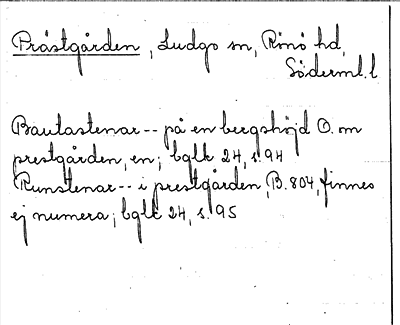 Prästgården, Ludgo sn, Rönö hd,
Söderml. l
Bautastenar -- på en bergshöjd O. om
prestgården, en; bglk 24, s. 94
Runstenar -- i prestgården, B. 804, finnes
ej numera; bglk 24, s. 95